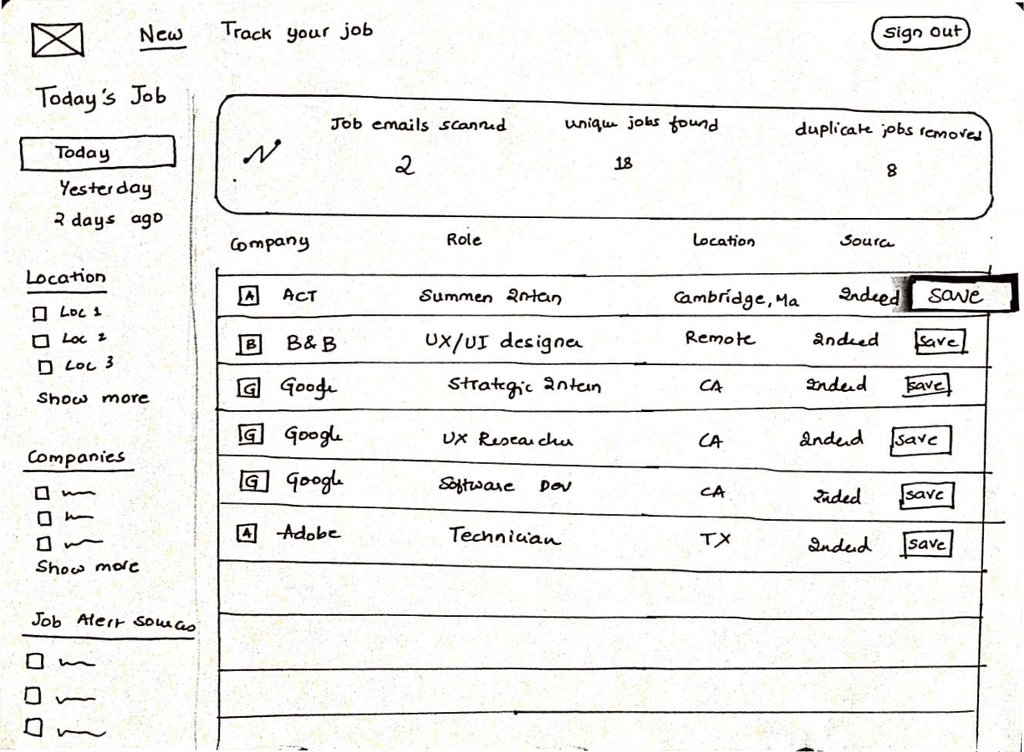 New Track your job Sign out
Today's Job
Today
Yesterday
2 days ago
Location
Loc 1
Loc 2
Loc 3
Show more
Companies
Show more
Job Alert Sources
Job emails scanned unique jobs found duplicate jobs removed
2 18 8
Company Role Location Source
A ACT Summer Intern Cambridge, Ma Indeed save
B B&B UX/UI designer Remote Indeed save
G Google Strategic Intern CA Indeed save
G Google UX Researcher CA Indeed save
G Google Software Dev CA Indeed save
A Adobe Technician TX Indeed save